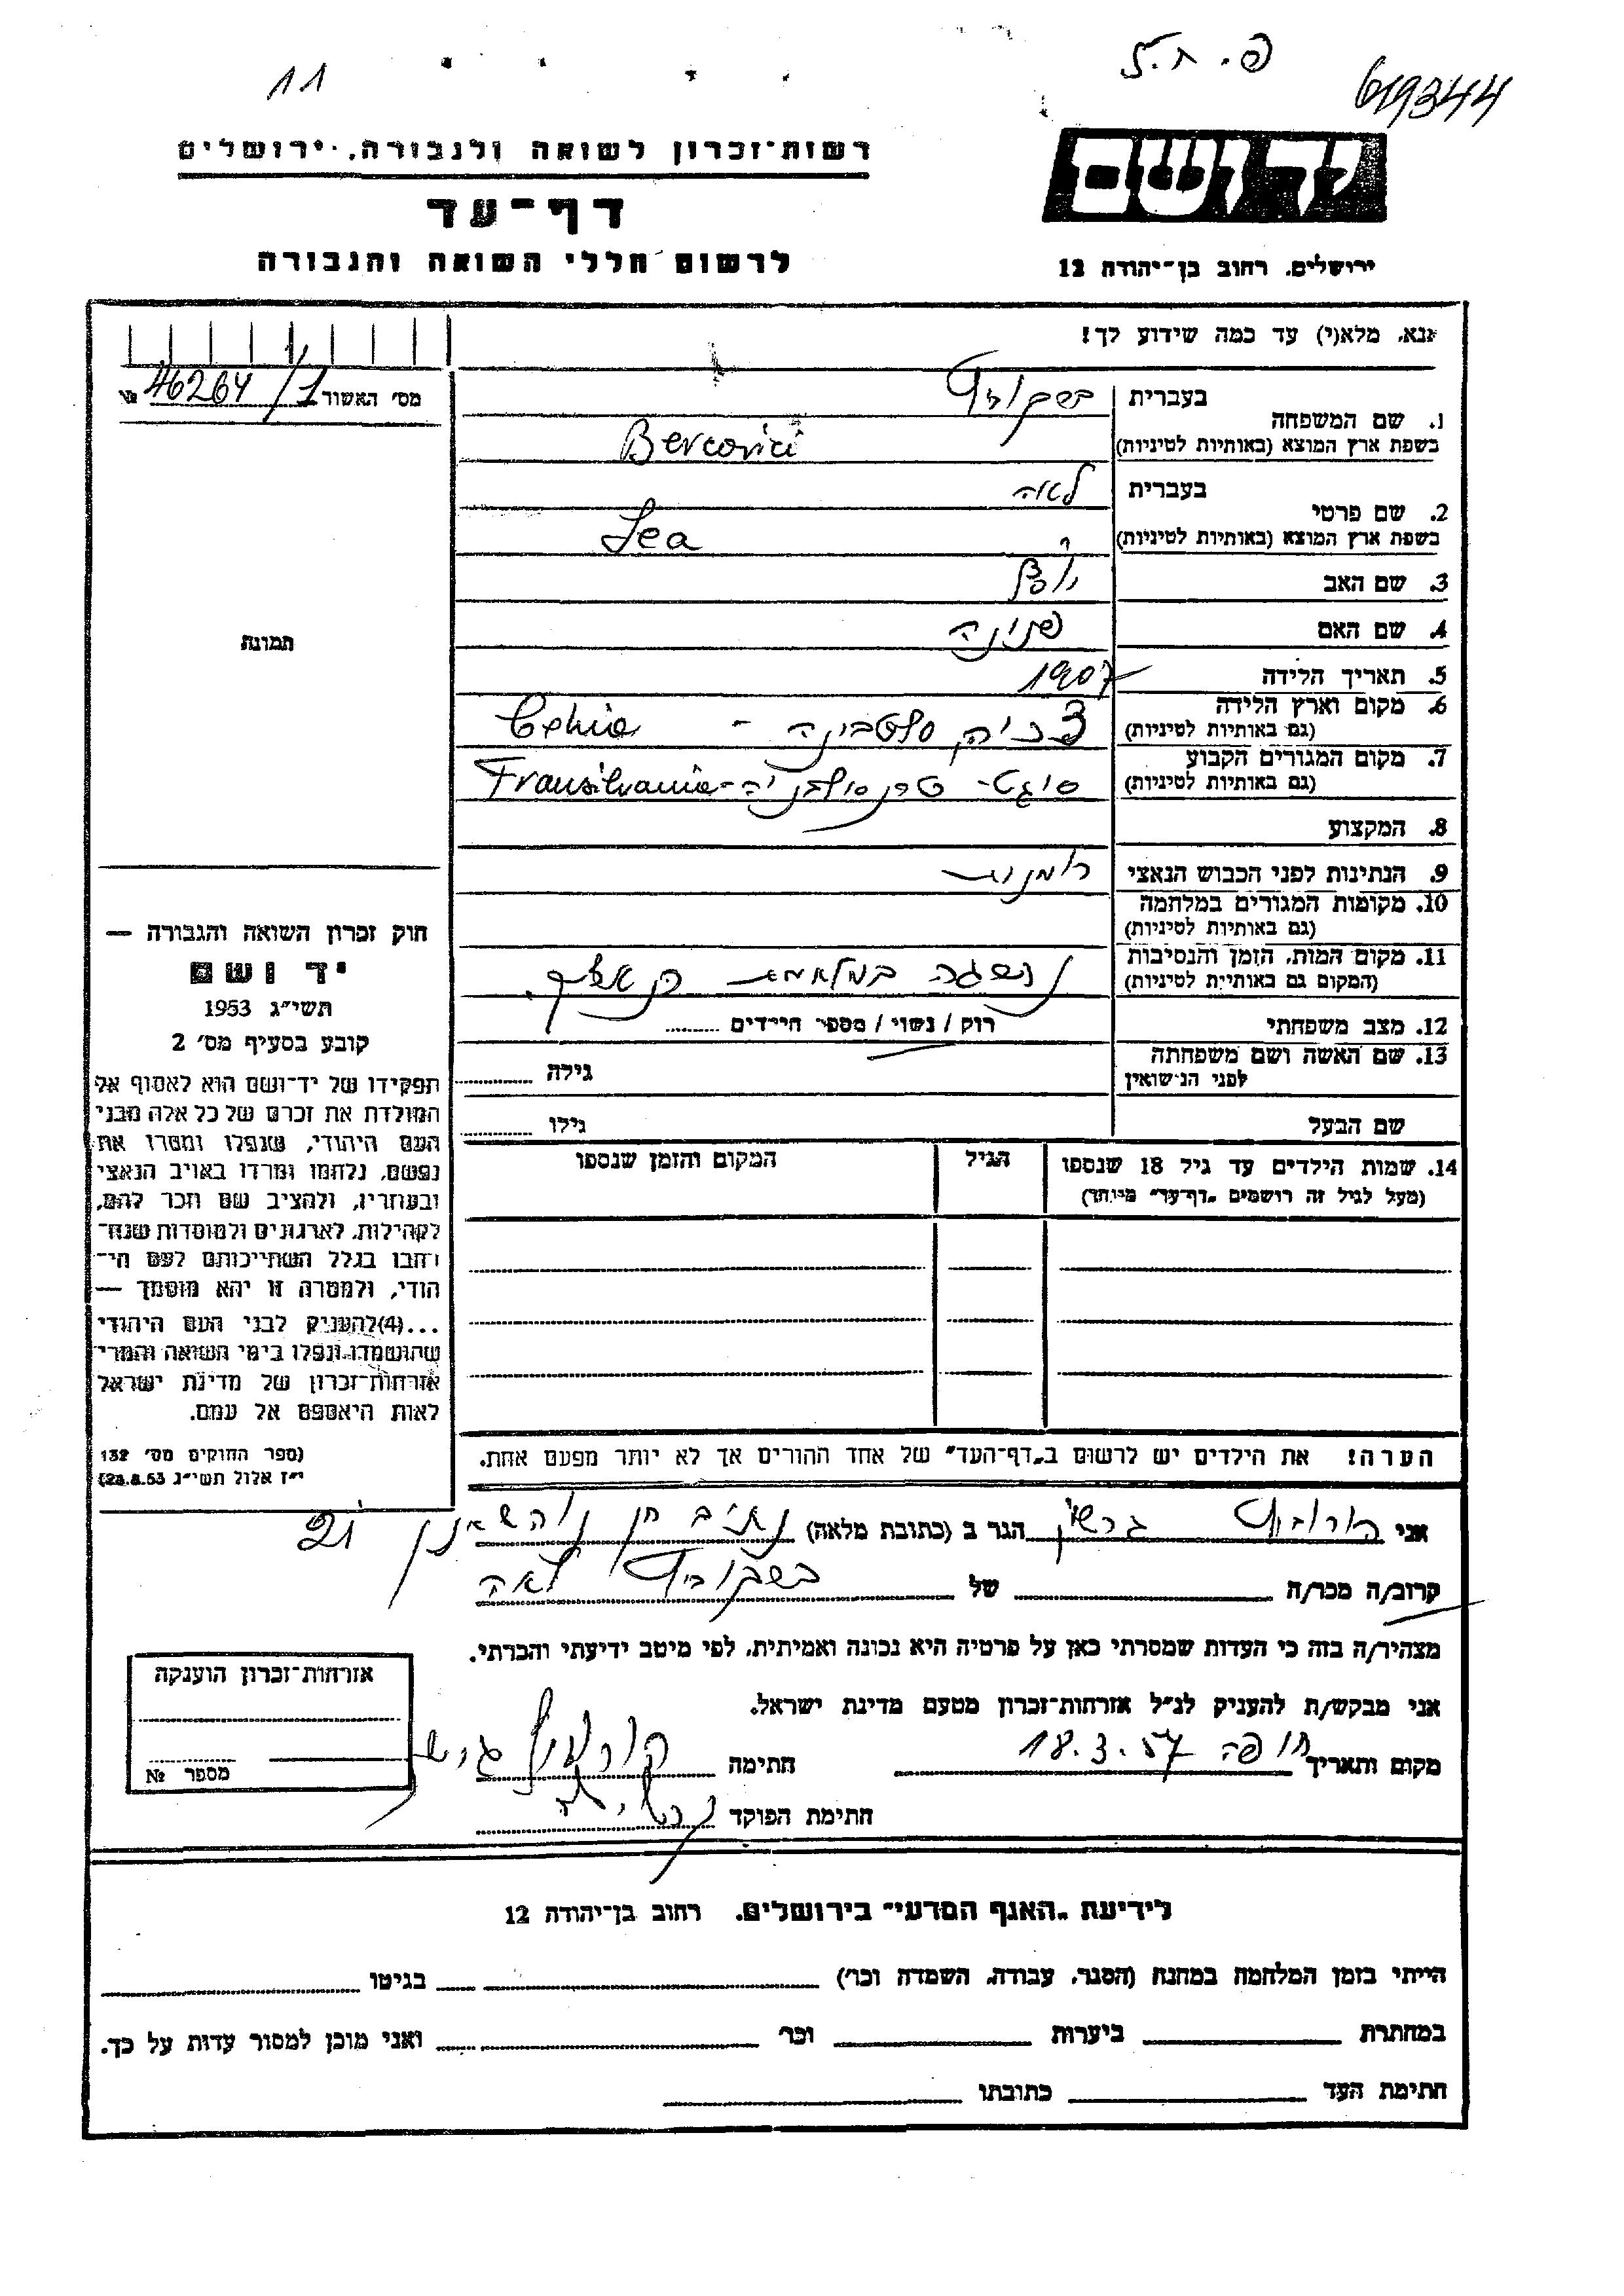 11
פ. ח. 5
619344
ידושם
רשות־זכרון לשואה ולגבורה, ירושלים
דף־עד
לרשום חללי השואה והגבורה
ירושלים. רחוב בן־יהודה 12
אנא, מלא(י) עד כמה שידוע לך!
מס' האשור 46264/1 №
1. שם המשפחה
בעברית ברקוביץ
בשפת ארץ המוצא (באותיות לטיניות) Bercovici
2. שם פרטי
בעברית לאה
בשפת ארץ המוצא (באותיות לטיניות) Lea
3. שם האב
4. שם האם פנינה
5. תאריך הלידה 1907
6. מקום וארץ הלידה
(גם באותיות לטיניות) Cehia
7. מקום המגורים הקבוע
(גם באותיות לטיניות) סיגט - טרנסילבניה - Transilvania
8. המקצוע
9. הנתינות לפני הכבוש הנאצי רומנית
10. מקומות המגורים במלחמה
(גם באותיות לטיניות)
11. מקום המות, הזמן והנסיבות
(המקום גם באותיות לטיניות) נספתה
12. מצב משפחתי רוק / נשוי / מספר הילדים
13. שם האשה ושם משפחתה
לפני הנישואין גילה
שם הבעל גילו
14. שמות הילדים עד גיל 18 שנספו
(מעל לגיל זה רושמים „דף־עד" מיוחד)
הגיל
המקום והזמן שנספו
הערה! את הילדים יש לרשום ב„דף־העד" של אחד ההורים אך לא יותר מפעם אחת.
תמונה
חוק זכרון השואה והגבורה —
יד ושם
תשי"ג 1953
קובע בסעיף מס' 2
תפקידו של יד־ושם הוא לאסוף אל
המולדת את זכרם של כל אלה מבני
העם היהודי, שנפלו ומסרו את
נפשם, נלחמו ומרדו באויב הנאצי
ובעוזריו, ולהציב שם וזכר להם,
לקהילות, לארגונים ולמוסדות שנח־
רבו בגלל השתייכותם לעם הי־
הודי, ולמטרה זו יהא מוסמך —
...(4)להעניק לבני העם היהודי
שהושמדו ונפלו בימי השואה והמרי
אזרחות־זכרון של מדינת ישראל
לאות היאספם אל עמם.
(ספר החוקים מס' 132
י"ז אלול תשי"ג 28.8.53)
אני הורוביץ גרשון הגר ב (כתובת מלאה) 21
קרוב/ה מכר/ה של ברקוביץ לאה
מצהיר/ה בזה כי העדות שמסרתי כאן על פרטיה היא נכונה ואמיתית, לפי מיטב ידיעתי והכרתי.
אני מבקש/ת להעניק לנ"ל אזרחות־זכרון מטעם מדינת ישראל.
מקום ותאריך חיפה 18.3.57 חתימה
חתימת הפוקד
אזרחות־זכרון הוענקה
מספר №
לידיעת „האגף המדעי" בירושלים. רחוב בן־יהודה 12
הייתי בזמן המלחמה במחנה (הסגר, עבודה, השמדה וכו') בגיטו
במחתרת ביערות וכו' ואני מוכן למסור עדות על כך.
חתימת העד כתובתו